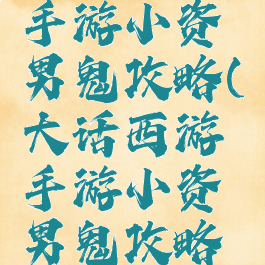 手游小资
男鬼攻略(
大话西游
手游小资
男鬼攻略